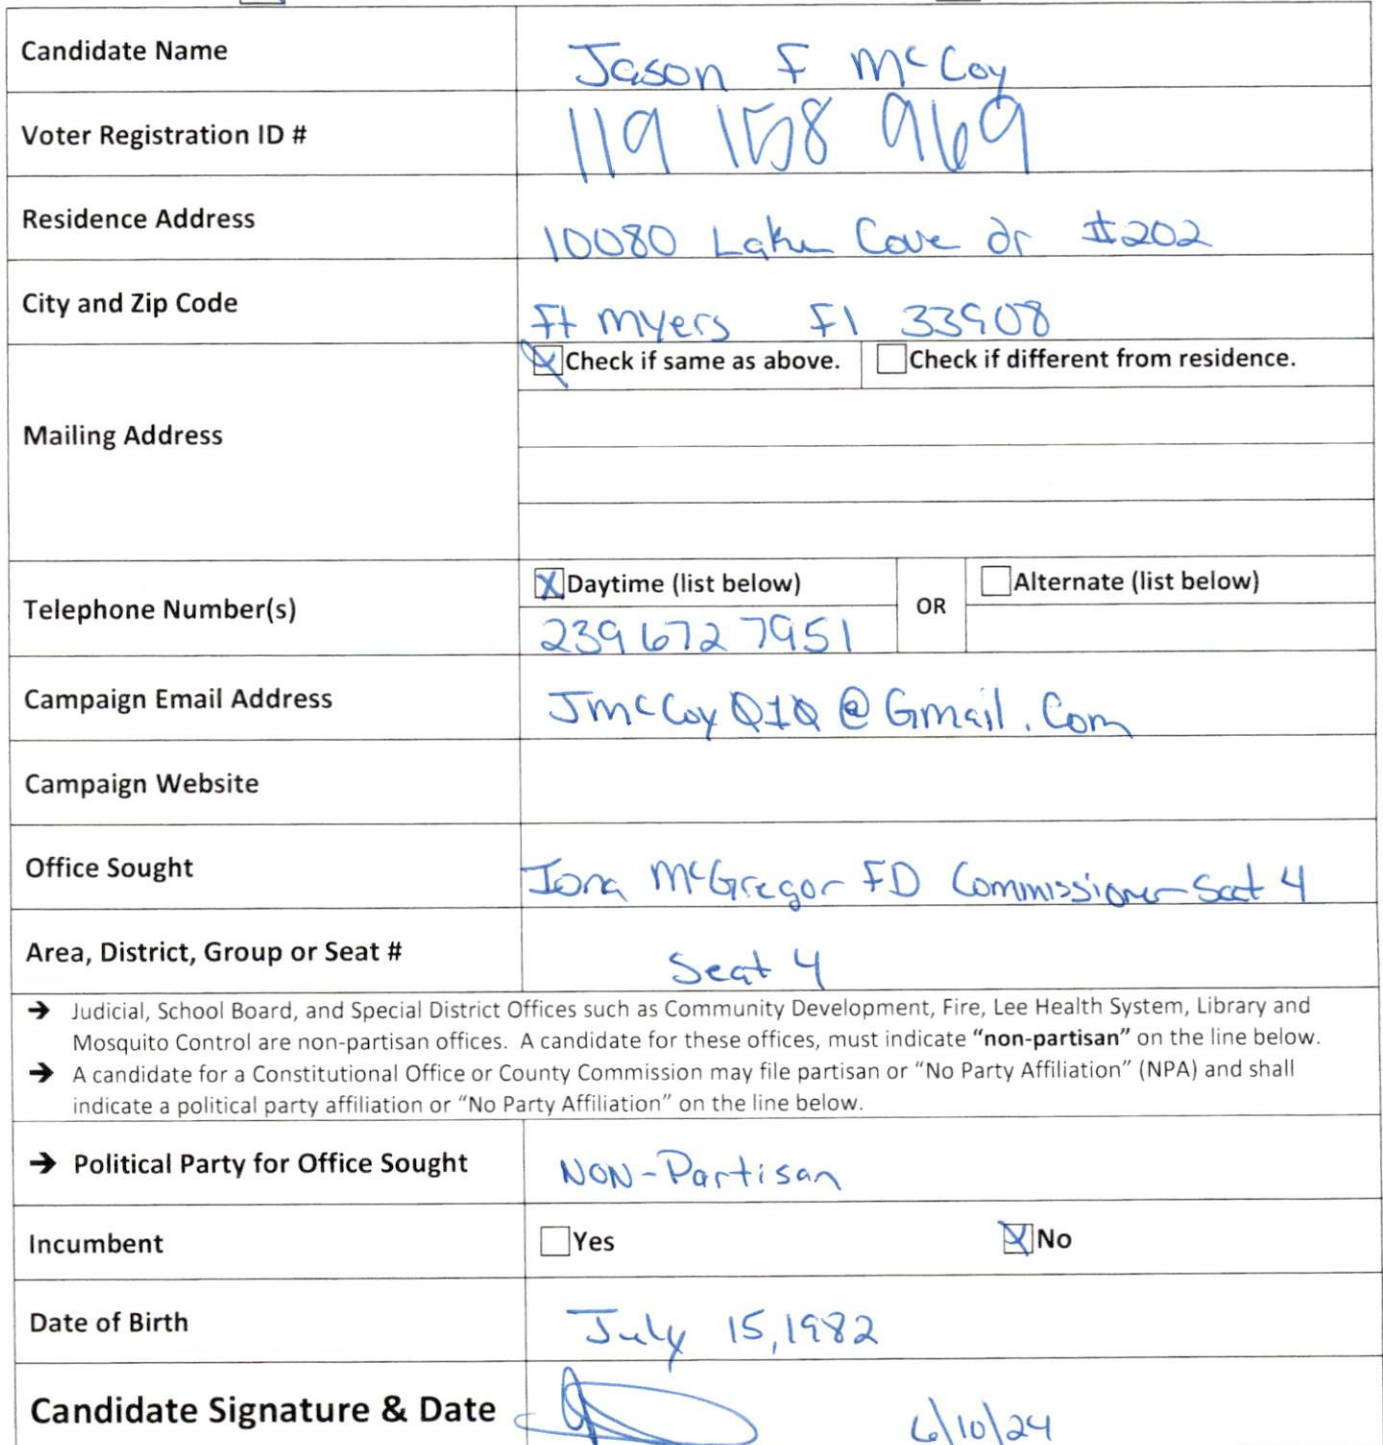 Candidate Name Jason F McCoy
Voter Registration ID # 119 158 969
Residence Address 10080 Lake Cove dr #202
City and Zip Code Ft myers Fl 33908
Check if same as above. Check if different from residence.
Mailing Address
Daytime (list below) OR Alternate (list below)
Telephone Number(s) 239 672 7951
Campaign Email Address JmcCoy010@Gmail.Com
Campaign Website
Office Sought Iona McGregor FD Commissioner Seat 4
Area, District, Group or Seat # Seat 4
→ Judicial, School Board, and Special District Offices such as Community Development, Fire, Lee Health System, Library and
Mosquito Control are non-partisan offices. A candidate for these offices, must indicate “non-partisan” on the line below.
→ A candidate for a Constitutional Office or County Commission may file partisan or “No Party Affiliation” (NPA) and shall
indicate a political party affiliation or “No Party Affiliation” on the line below.
→ Political Party for Office Sought NON-Partisan
Incumbent Yes No
Date of Birth July 15, 1982
Candidate Signature & Date 6/10/24